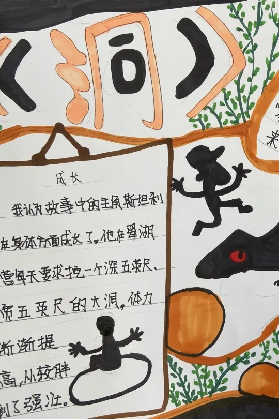 《洞》
成长
我认为故事中的主角斯坦利
在身体方面成长了。他在翠湖
营每天要求挖一个深五英尺、
五英尺的大洞。体力
渐渐提
高,从较胖
到了强壮。
米